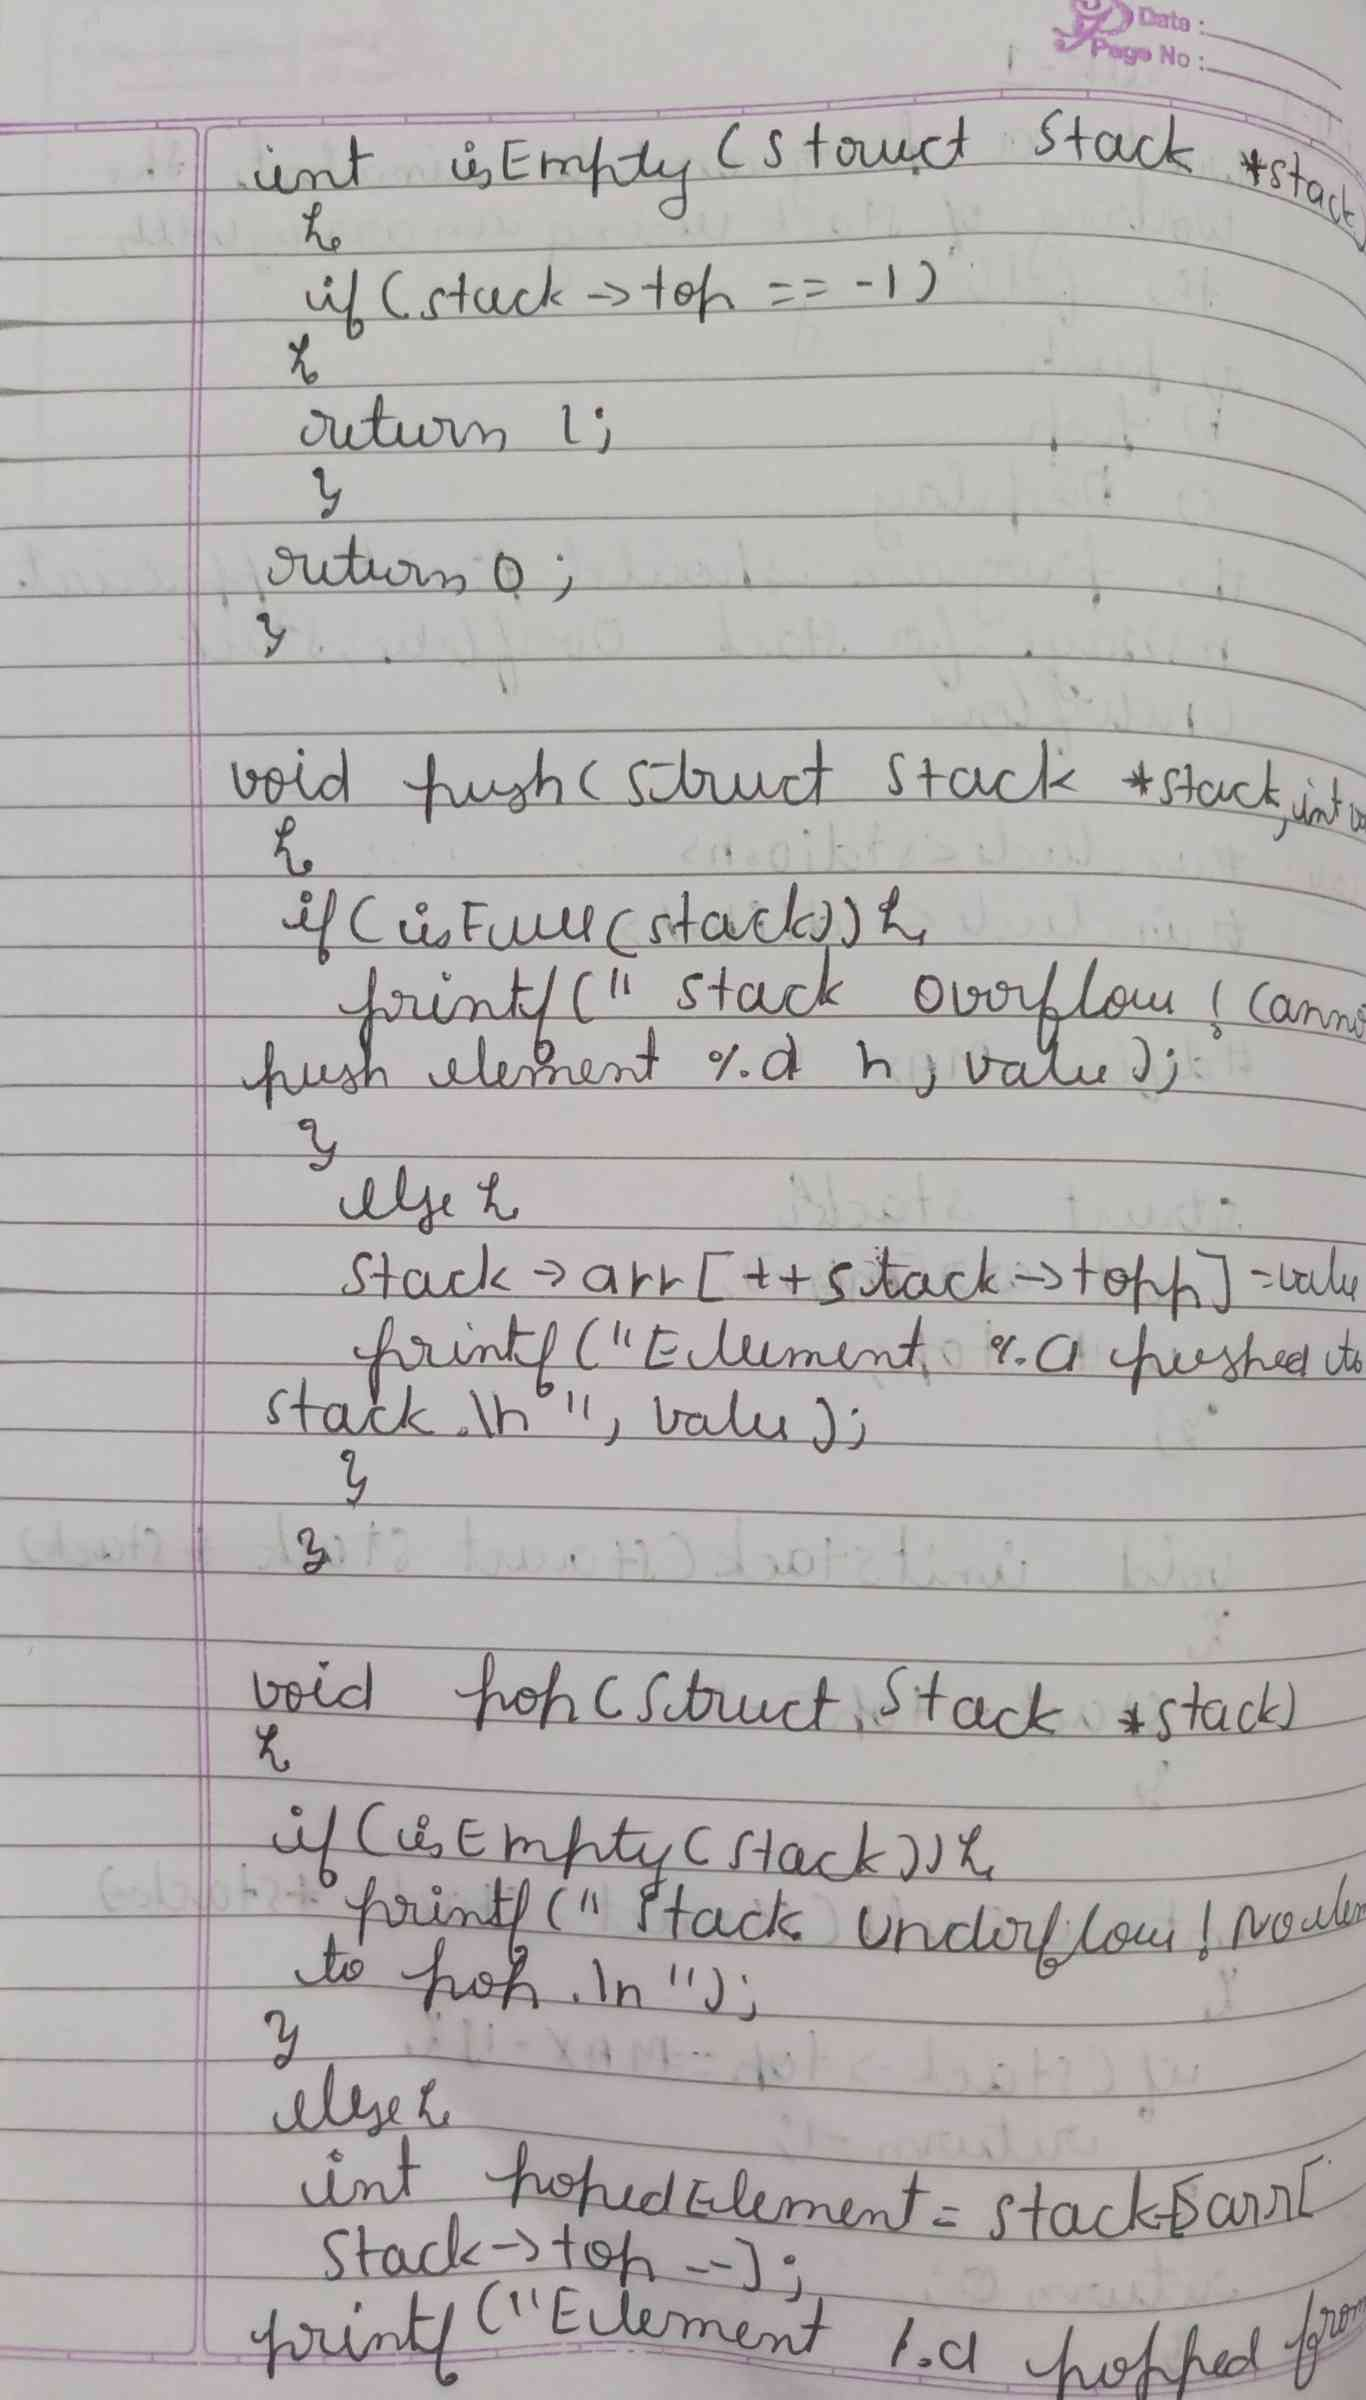 Date :
Page No :
int isEmpty (struct Stack *stack)
{
if (stack -> top == -1)
{
return 1;
}
return 0 ;
}
void push ( struct Stack *stack, int
{
if ( isFull (stack)) {
printf (" Stack Overflow ! Cannot
push element %.d n , value ) ;
}
else {
Stack -> arr [ ++ stack -> topp ] = value
printf ("Element %.d pushed to
stack .\n ", value ) ;
}
}
void pop ( Struct Stack *stack)
{
if ( isEmpty ( Stack )) {
printf (" Stack Underflow ! No
to pop .\n ") ;
}
else {
int popedElement = stack-> arr [
Stack -> top -- ] ;
printf ("Element %.d popped from